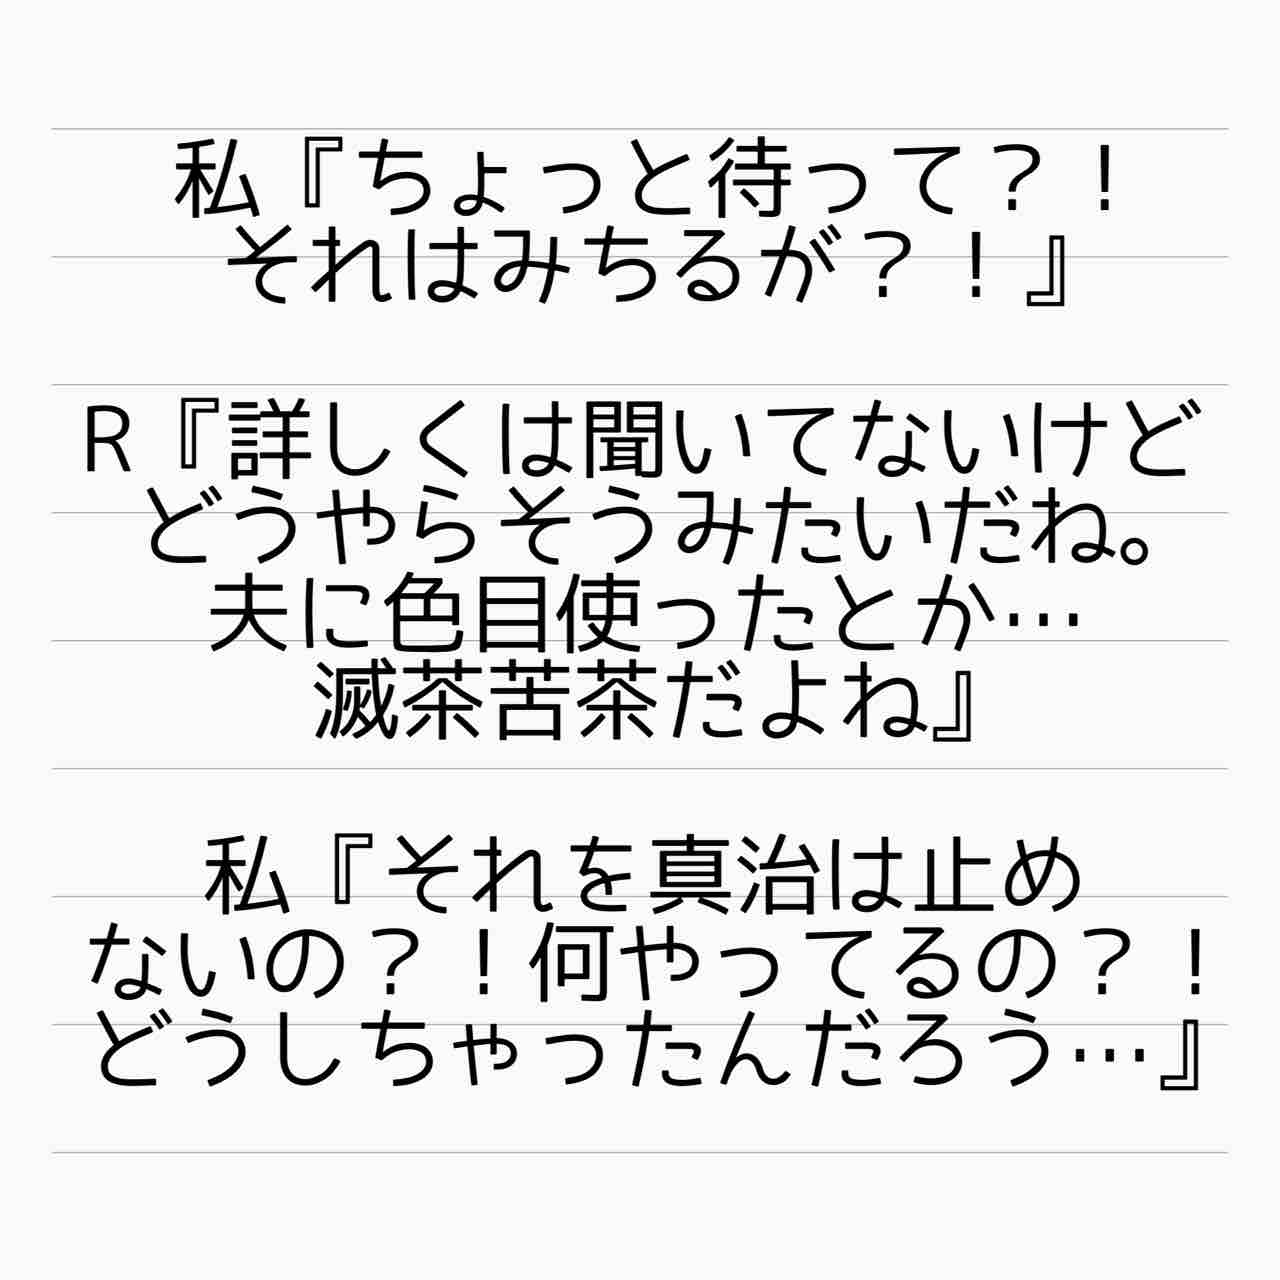 私『ちょっと待って？！
それはみちるが？！』
R『詳しくは聞いてないけど
どうやらそうみたいだね。
夫に色目使ったとか…
滅茶苦茶だよね』
私『それを真治は止め
ないの？！何やってるの？！
どうしちゃったんだろう…』